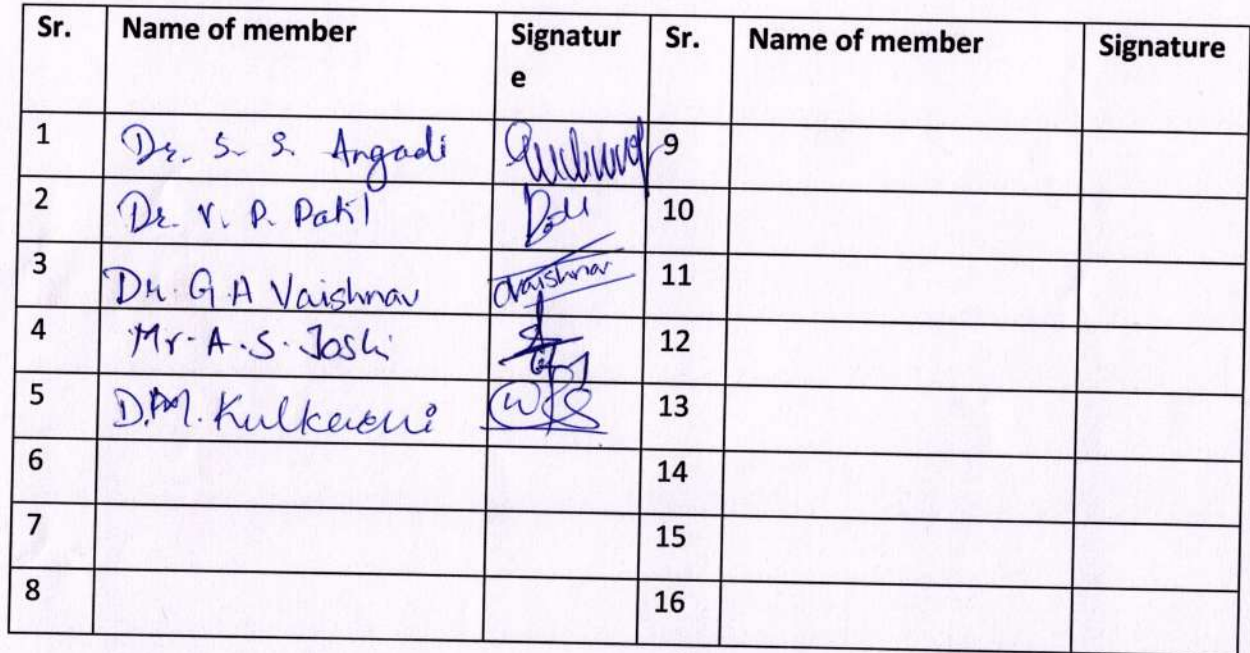 Sr. Name of member Signatur Sr. Name of member Signature
e
1 Dr. S. S. Angadi 9
2 Dr. V. P. Patil 10
3 Dr. G. A Vaishnav Vaishnav 11
4 Mr. A. S. Joshi 12
5 Kulkarni 13
6 14
7 15
8 16